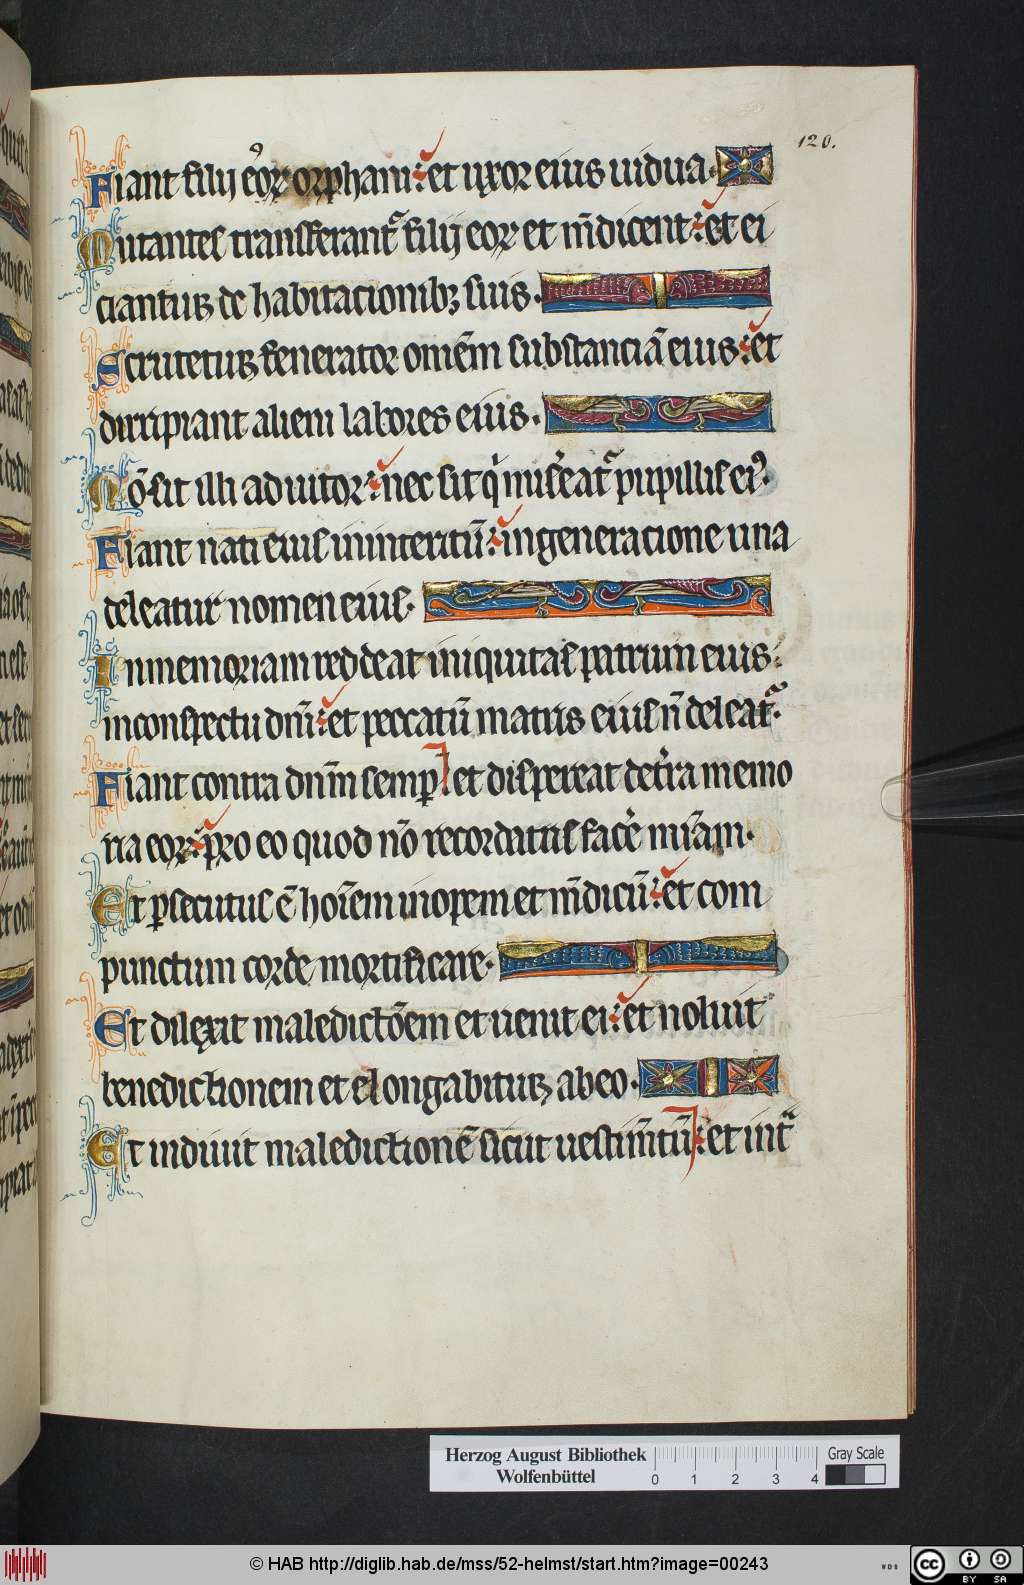 120.
Fiant filij eoꝝ orphani : et uxor eius uidua .
Nutantes transferant᷑ filij eoꝝ et m̄dicent : et ei
ciantur de habitacionibꝫ suis .
Scrutetur fenerator omēm substanciā eius : et
diripiant alieni labores eius .
Nō sit illi adiutor : nec sit q̇ mise̓at᷑ pupillis ei⁹ .
Fiant nati eius in interitū : in generacione una
deleatur nomen eius .
In memoriam redeat iniquitas patrum eius :
in conspectu dn̄i : et peccatū matris eius n̄ deleat᷑ .
Fiant contra dn̄m semp̱ et dispereat de t̓ra memo
ria eoꝝ : pro eo quod nō recordatus face̓ mīam .
Et p̱secutus ē hoīem inopem et m̄dicū : et com
punctum corde mortificare .
Et dilexit maledictōem et ueniet ei : et noluit
benedictionem et elongabitur ab eo .
Et induit maledictionē sicut uestim̄tū : et int᷑
Herzog August Bibliothek
Wolfenbüttel
0 1 2 3 4
Gray Scale
© HAB http://diglib.hab.de/mss/52-helmst/start.htm?image=00243
WDB
cc BY SA